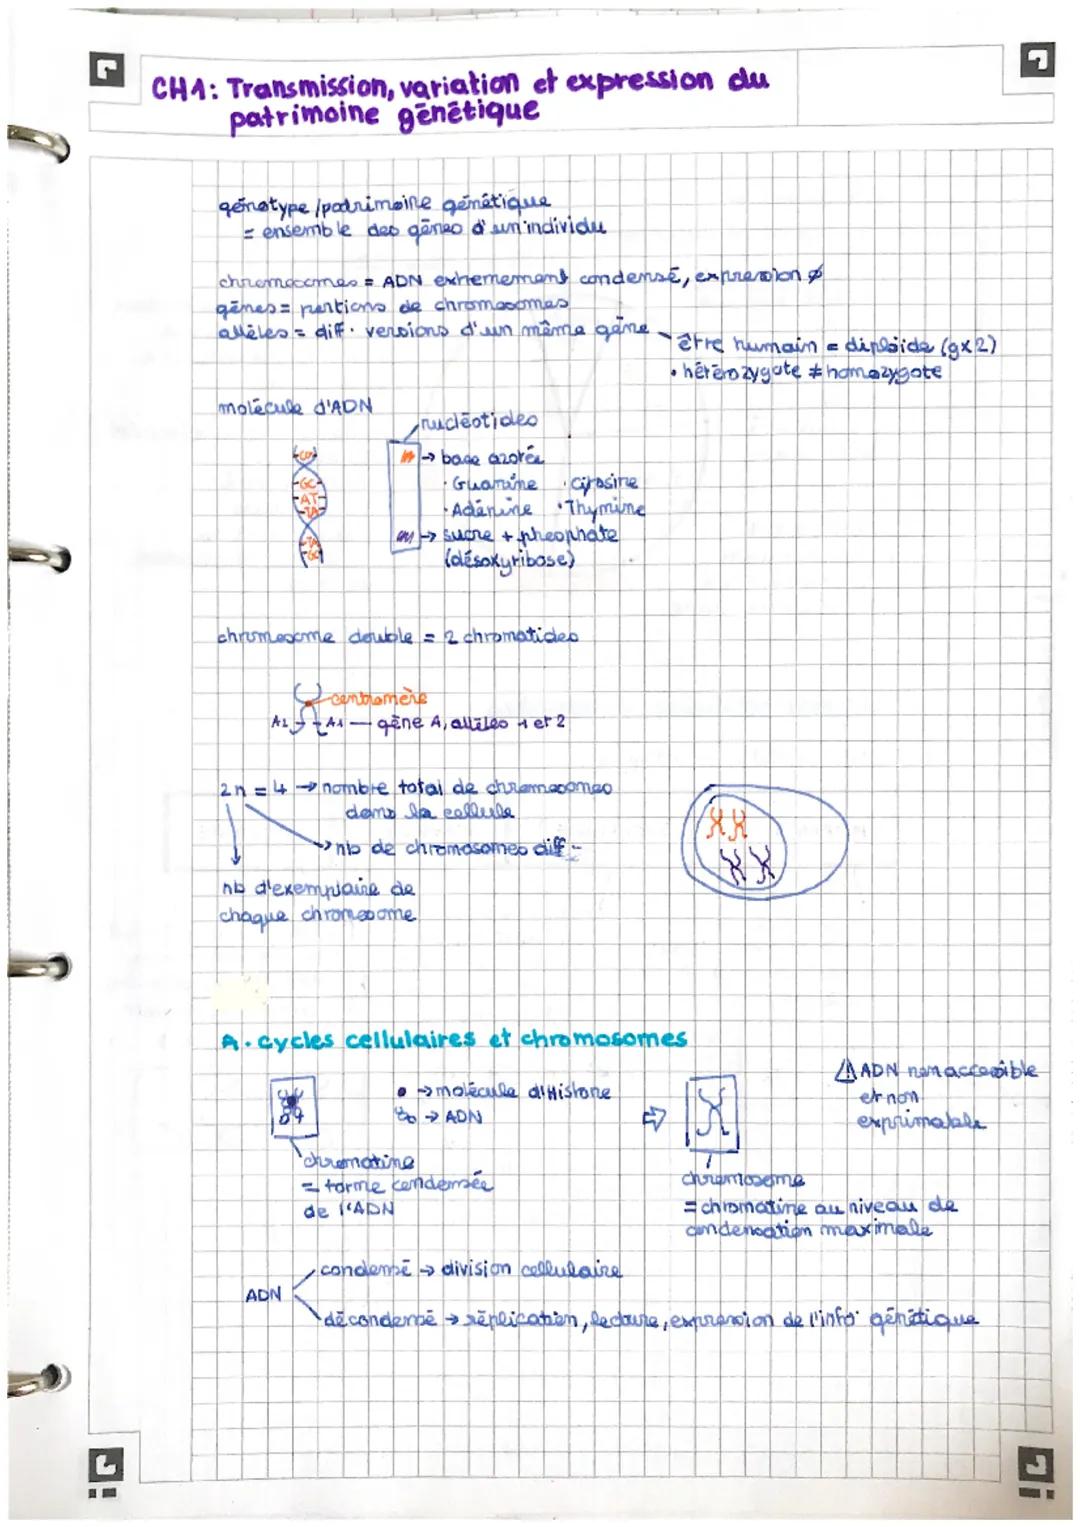 CH1: Transmission, variation et expression du
patrimoine génétique
génotype / patrimoine génétique
= ensemble des gènes d'un individu
chromosomes = ADN extrêmement condensé, expression ø
gènes = portions de chromosomes
allèles = diff. versions d'un même gène
être humain = diploïde (gx2)
• hétérozygote ≠ homozygote
molécule d'ADN
nucléotides
→ base azotée
• Guanine • Cytosine
• Adénine • Thymine
→ sucre + phosphate
(désoxyribose)
GC
AT
TA
TA
GC
chromosome double = 2 chromatides
centromère
A2 A1 — gène A, allèles 1 et 2
2n = 4 → nombre total de chromosomes
dans la cellule
→ nb de chromosomes diff.
nb d'exemplaire de
chaque chromosome
A. cycles cellulaires et chromosomes
→ molécule d'Histone
→ ADN
⇨
⚠ ADN non accessible
et non
exprimable
chromatine
= forme condensée
de l'ADN
chromosome
= chromatine au niveau de
condensation maximale
ADN
condensé → division cellulaire
décondensé → réplication, lecture, expression de l'info génétique